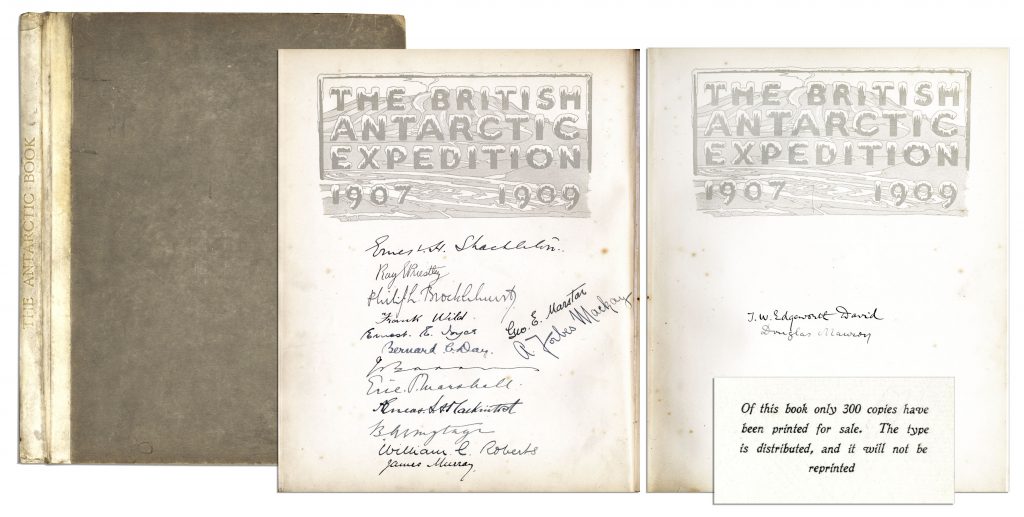 THE ANTARCTIC BOOK
THE BRITISH
ANTARCTIC
EXPEDITION
1907 1909
Ernest H. Shackleton.
Ray E Priestley
Philip L Brocklehurst
Frank Wild.
Geo. E. Marston
Ernest E. Joyce
A Forbes Mackay
Bernard C. Day.
Eric P. Marshall.
Aeneas L A Mackintosh
B Armytage
William C. Roberts
James Murray.
THE BRITISH
ANTARCTIC
EXPEDITION
1907 1909
T. W. Edgeworth David
Douglas Mawson
Of this book only 300 copies have
been printed for sale. The type
is distributed, and it will not be
reprinted